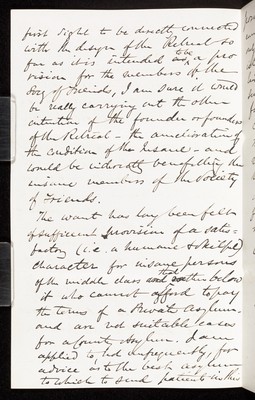 first sight to be directly connected
with the design of the Retreat so
far as it is intended to be a pro
vision for the members of the
Socy of Friends, I am sure it would
be really carrying out the other
intention of the founder or founders
of the Retreat - the amelioration of
the condition of the Insane - and
would be indirectly benefiting the
insane members of the Society
of Friends.
The want has long been felt
of sufficient provision of a satis-
factory (i.e. a humane & skilful)
character for insane persons
of the middle class and those below
it who cannot afford to pay
the terms of a Private Asylum
and are not suitable cases
for a County Asylum. I am
applied to, not unfrequently, for
advice as to the best asylum
to which to send patients in this